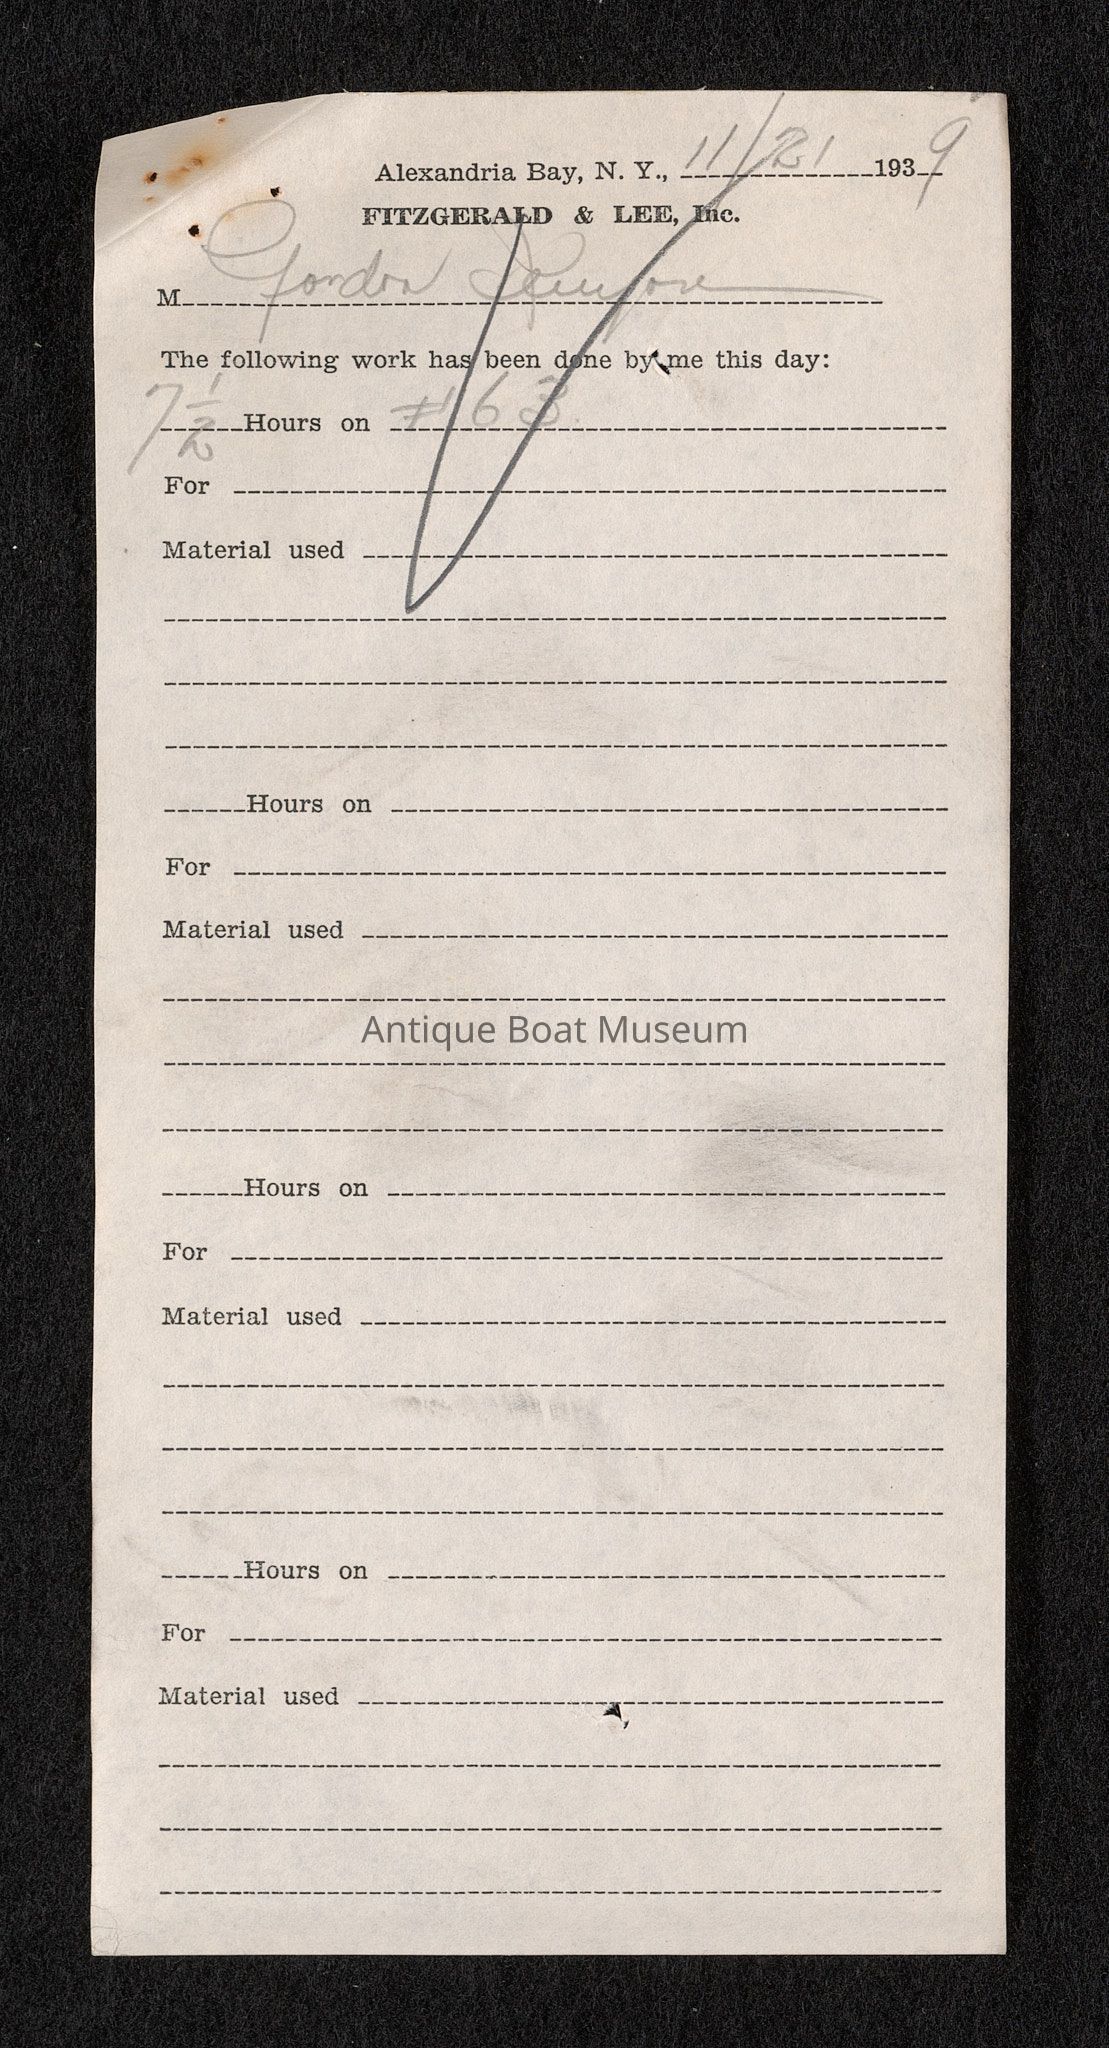 Alexandria Bay, N. Y., 11/21 1939
FITZGERALD & LEE, Inc.
M Gordon
The following work has been done by me this day:
7 1/2 Hours on #163.
For
Material used
Hours on
For
Material used
Antique Boat Museum
Hours on
For
Material used
Hours on
For
Material used